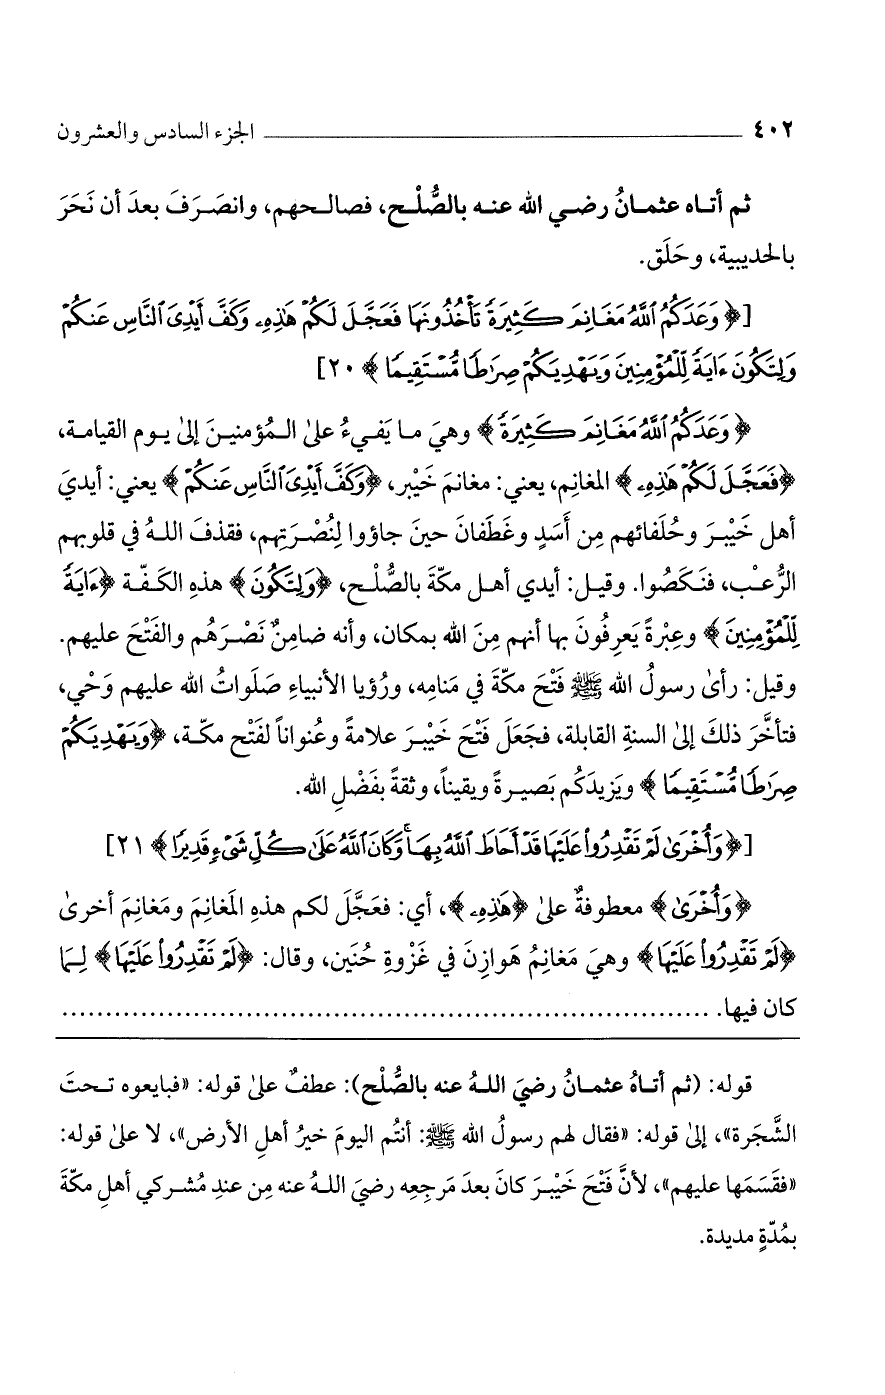 ٤٠٢ الجزء السادس والعشرون
ثم أتـاه عثمـانُ رضـي الله عنـه بالصُّلْـح، فصالـحهم، وانصَـرَفَ بعدَ أن نَحَرَ
بالحديبية، وحَلَق.
[﴿وَعَدَكُمُ ٱللَّهُ مَغَانِمَ كَثِيرَةً تَأْخُذُونَهَا فَعَجَّلَ لَكُمْ هَٰذِهِۦ وَكَفَّ أَيْدِىَ ٱلنَّاسِ عَنكُمْ
وَلِتَكُونَ ءَايَةً لِّلْمُؤْمِنِينَ وَيَهْدِيَكُمْ صِرَٰطًا مُّسْتَقِيمًا﴾ ٢٠]
﴿وَعَدَكُمُ ٱللَّهُ مَغَانِمَ كَثِيرَةً﴾ وهيَ مـا يَفـيءُ علىٰ الـمُؤمنيـنَ إلىٰ يـوم القيامـة،
﴿فَعَجَّلَ لَكُمْ هَٰذِهِۦ﴾ المغانِم، يعني: مغانمَ خَيْبر، ﴿وَكَفَّ أَيْدِىَ ٱلنَّاسِ عَنكُمْ﴾ يعني: أيديَ
أهل خَيْبـرَ وحُلَفائهم مِن أَسَدٍ وغَطَفانَ حينَ جاؤوا لِنُصْـرَتِهم، فقذفَ اللـهُ في قلوبهم
الرُّعـْب، فنَـكَصُوا. وقيـل: أيدي أهـل مكّةَ بالصُّلْـح، ﴿وَلِتَكُونَ﴾ هذهِ الكَفّـة ﴿ءَايَةً
لِّلْمُؤْمِنِينَ﴾ وعِبْرةً يَعرِفُونَ بها أنهم مِنَ الله بمكان، وأنه ضامِنٌ نَصْـرَهُم والفَتْحَ عليهم.
وقيل: رأىٰ رسولُ الله ﷺ فَتْحَ مكّةَ في مَنامِه، ورُؤيا الأنبياءِ صَلَواتُ الله عليهم وَحْي،
فتأخَّرَ ذلكَ إلىٰ السنةِ القابلة، فجعَلَ فَتْحَ خَيْبـرَ علامةً وعُنواناً لفَتْح مكّـة، ﴿وَيَهْدِيَكُمْ
صِرَٰطًا مُّسْتَقِيمًا﴾ ويَزيدَكُم بَصيـرةً ويقيناً، وثقةً بفَضْلِ الله.
[﴿وَأُخْرَىٰ لَمْ تَقْدِرُوا۟ عَلَيْهَا قَدْ أَحَاطَ ٱللَّهُ بِهَا ۚ وَكَانَ ٱللَّهُ عَلَىٰ كُلِّ شَىْءٍ قَدِيرًا﴾ ٢١]
﴿وَأُخْرَىٰ﴾ معطوفةٌ علىٰ ﴿هَٰذِهِۦ﴾، أي: فعَجَّلَ لكم هذهِ المَغانِمَ ومَغانِمَ أخرىٰ
﴿لَمْ تَقْدِرُوا۟ عَلَيْهَا﴾ وهيَ مَغانِمُ هَوازِنَ في غَزْوةِ حُنَين، وقال: ﴿لَمْ تَقْدِرُوا۟ عَلَيْهَا﴾ لِـمَا
كان فيها. ......................................................................
قوله: (ثم أتـاهُ عثمـانُ رضيَ اللـهُ عنه بالصُّلْح): عطفٌ علىٰ قوله: «فبايعوه تـحتَ
الشَّجَرة»، إلىٰ قوله: «فقال لهم رسولُ الله ﷺ: أنتُم اليومَ خيرُ أهلِ الأرض»، لا علىٰ قوله:
«فقَسَمَها عليهم»، لأنَّ فَتْحَ خَيْبـرَ كانَ بعدَ مَرجِعِه رضيَ اللـهُ عنه مِن عندِ مُشـركي أهلِ مكّةَ
بمُدّةٍ مديدة.